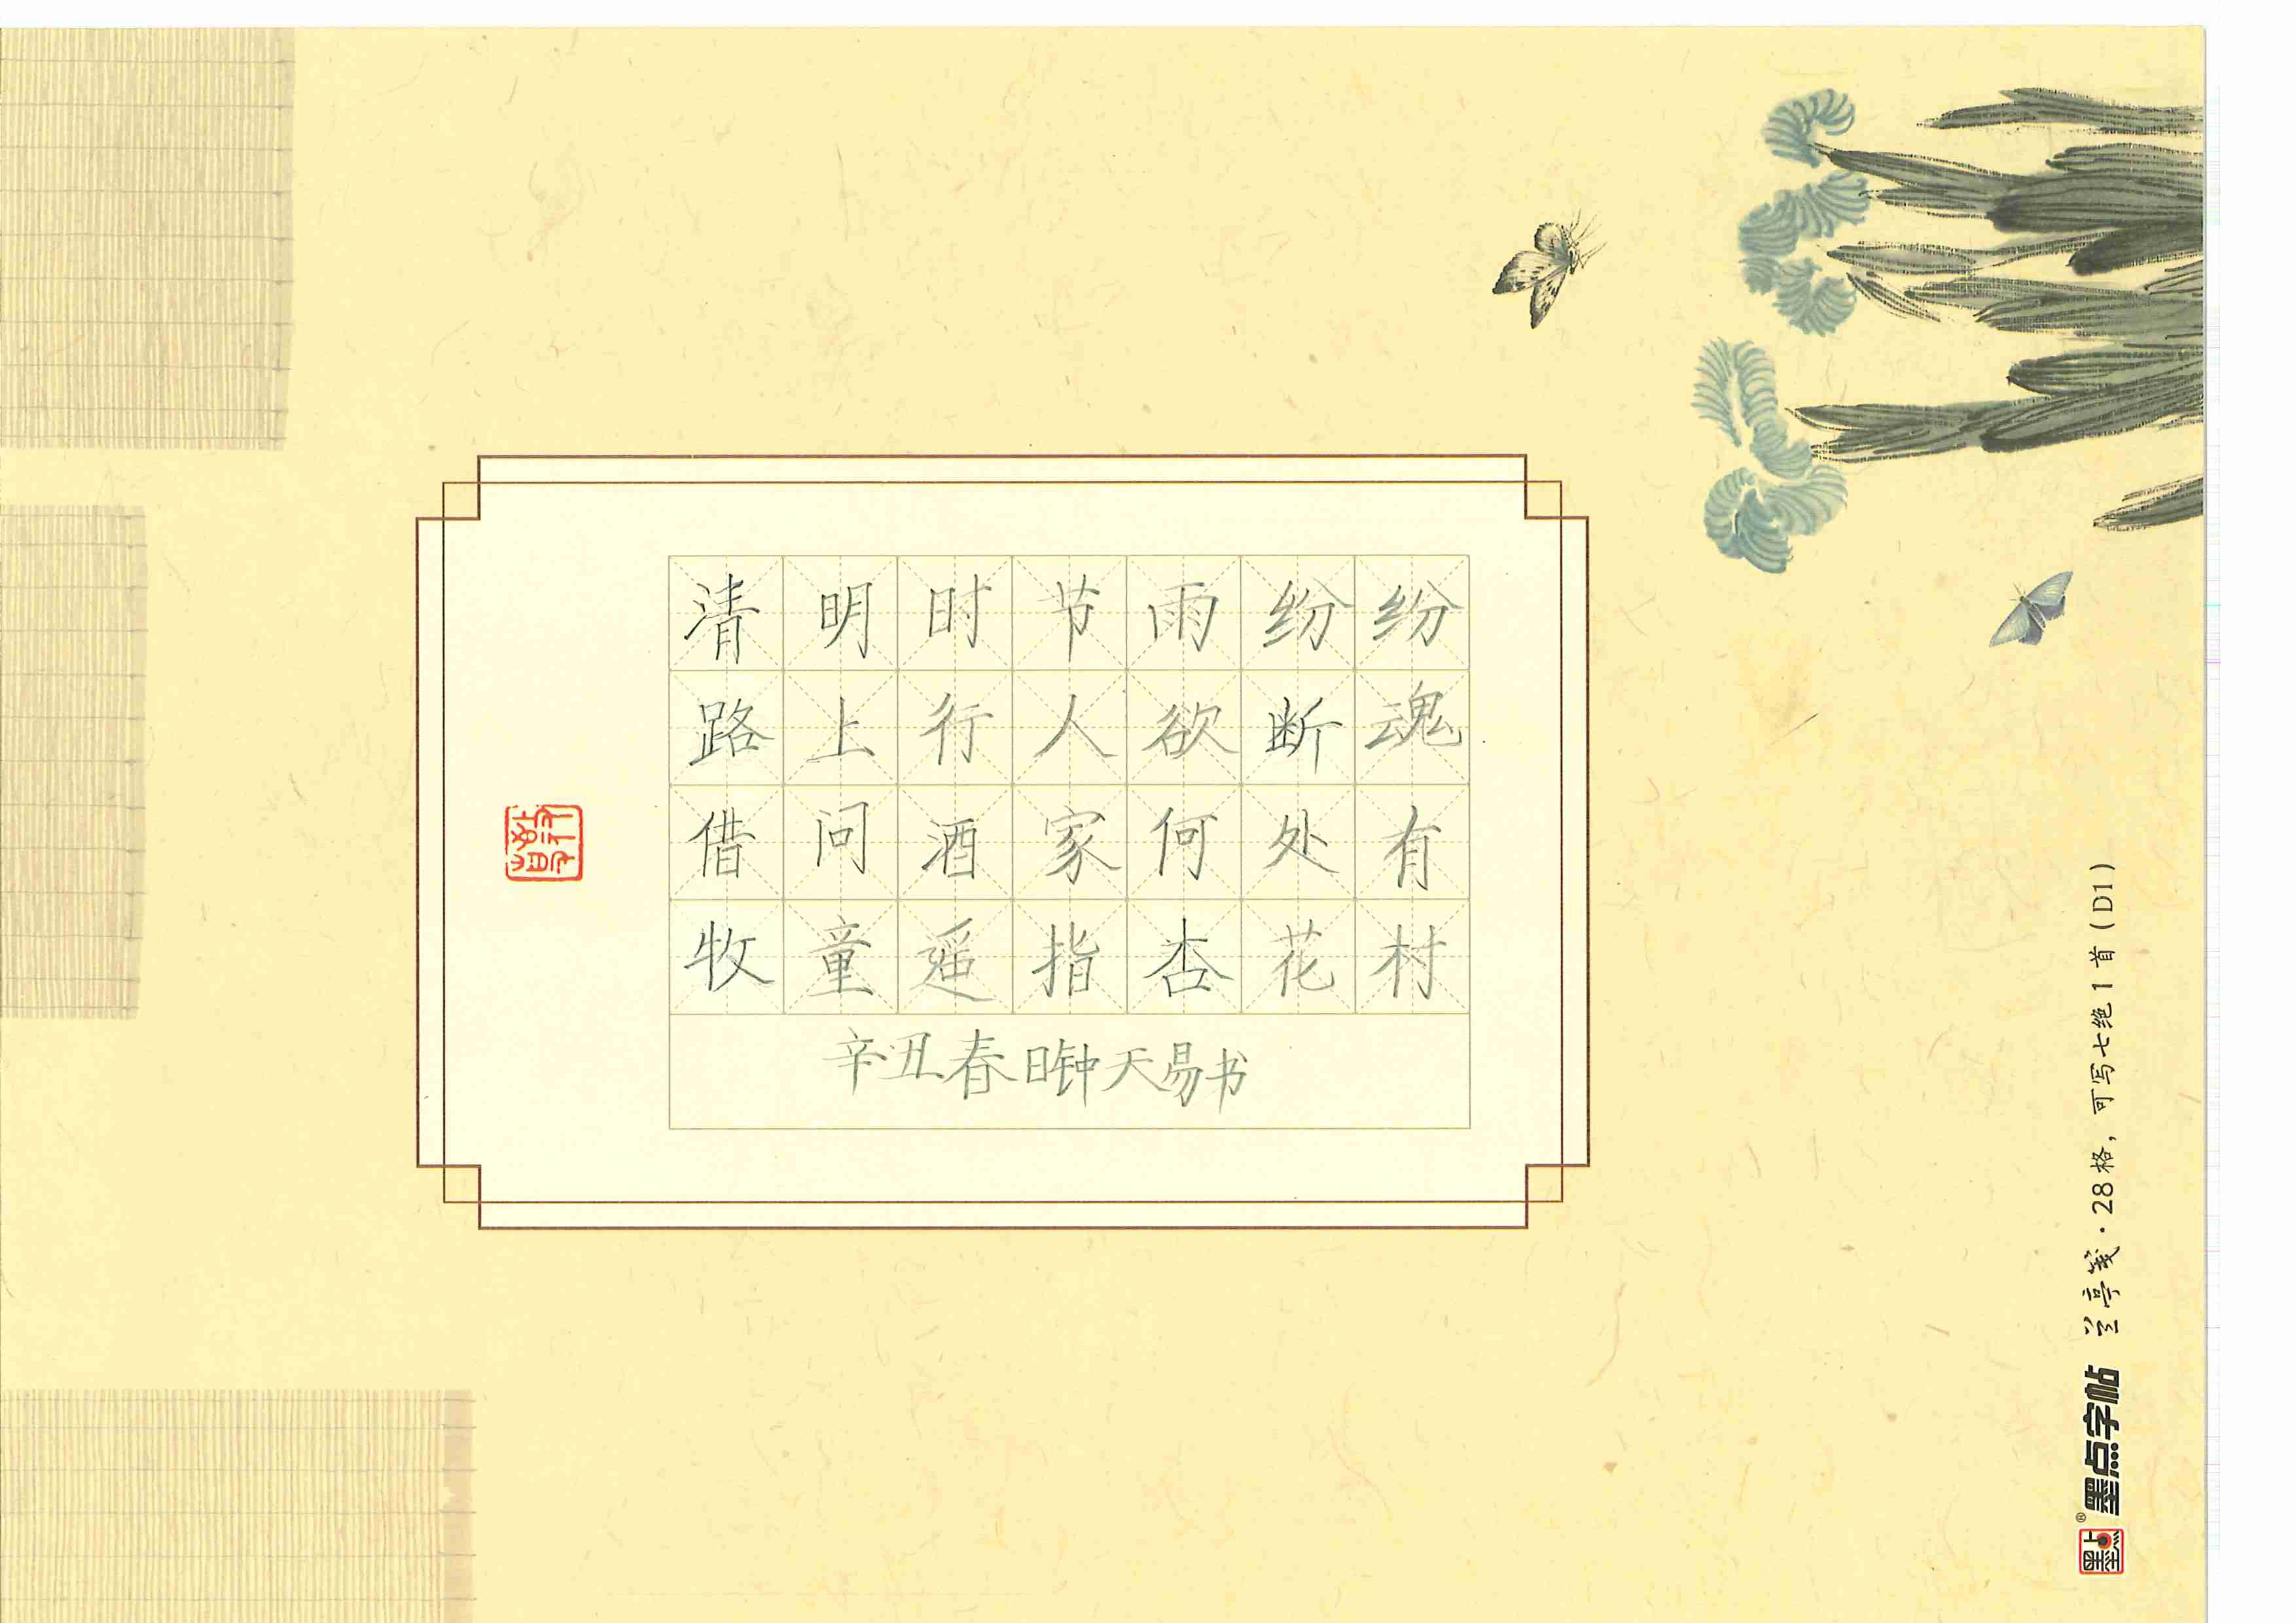 清明时节雨纷纷
路上行人欲断魂
借问酒家何处有
牧童遥指杏花村
辛丑春日钟天易书
墨点字帖 兰亭笺·28格，可写七绝1首（D1）